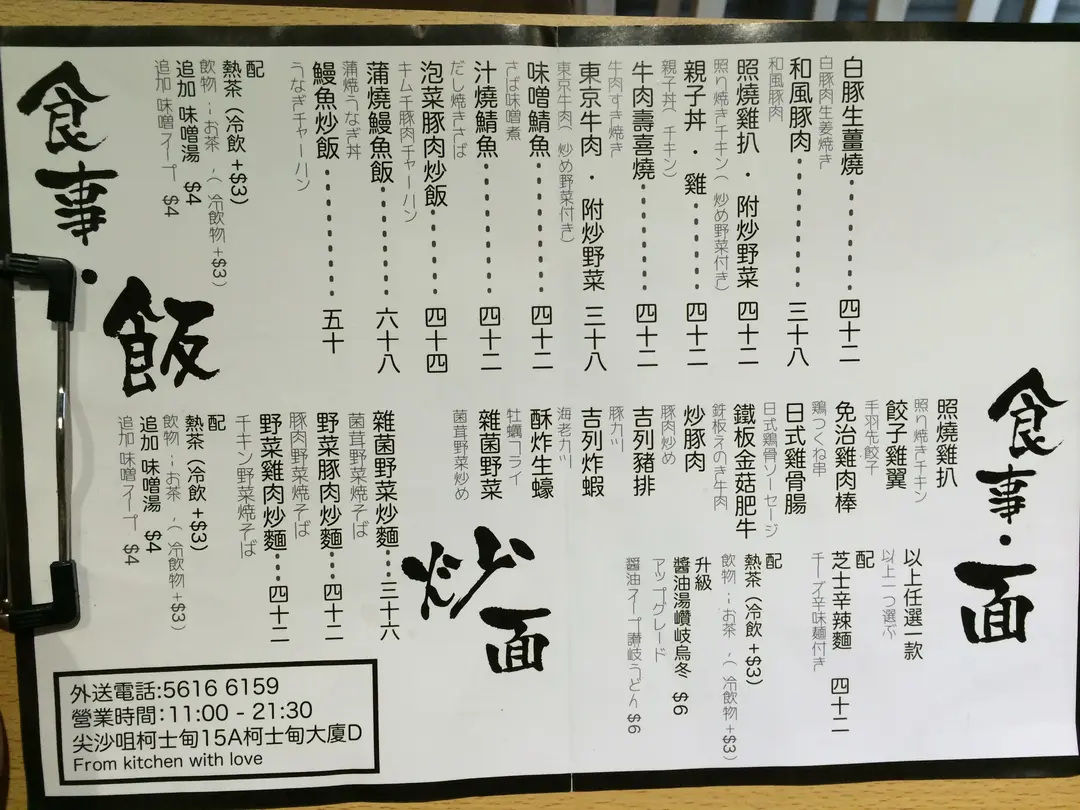 食事·飯
白豚生薑燒 四十二
白豚肉生姜焼き
和風豚肉 三十八
和風豚肉
照燒雞扒 · 附炒野菜 四十二
照り焼きチキン(炒め野菜付き)
親子丼 · 雞 四十二
親子丼(チキン)
牛肉壽喜燒 四十二
牛肉すき焼き
東京牛肉 · 附炒野菜 三十八
東京牛肉(炒め野菜付き)
味噌鯖魚 四十二
さば味噌煮
汁燒鯖魚 四十二
だし焼きさば
泡菜豚肉炒飯 四十四
キムチ豚肉チャーハン
蒲燒鰻魚飯 六十八
蒲焼うなぎ丼
鰻魚炒飯 五十
うなぎチャーハン
配
熱茶 (冷飲 +$3)
飲物:お茶、(冷飲物+$3)
追加 味噌湯 $4
追加 味噌スープ $4
食事·面
照燒雞扒
照り焼きチキン
餃子雞翼
手羽先餃子
免治雞肉棒
鶏つくね串
日式雞骨腸
日式鶏骨ソーセージ
鐵板金菇肥牛
鉄板えのき牛肉
炒豚肉
豚肉炒め
吉列豬排
豚カツ
吉列炸蝦
海老カツ
酥炸生蠔
牡蠣フライ
雜菌野菜
菌茸野菜炒め
以上任選一款
以上一つ選ぶ
配
芝士辛辣麵 四十二
チーズ辛味麺付き
配
熱茶 (冷飲 +$3)
飲物:お茶、(冷飲物+$3)
升級
醬油湯讚岐烏冬 $6
アップグレード
醤油スープ讃岐うどん $6
炒面
雜菌野菜炒麵 三十六
菌茸野菜焼そば
野菜豚肉炒麵 四十二
豚肉野菜焼そば
野菜雞肉炒麵 四十二
チキン野菜焼そば
配
熱茶 (冷飲 +$3)
飲物:お茶、(冷飲物+$3)
追加 味噌湯 $4
追加 味噌スープ $4
外送電話:5616 6159
營業時間:11:00 - 21:30
尖沙咀柯士甸15A柯士甸大廈D
From kitchen with love